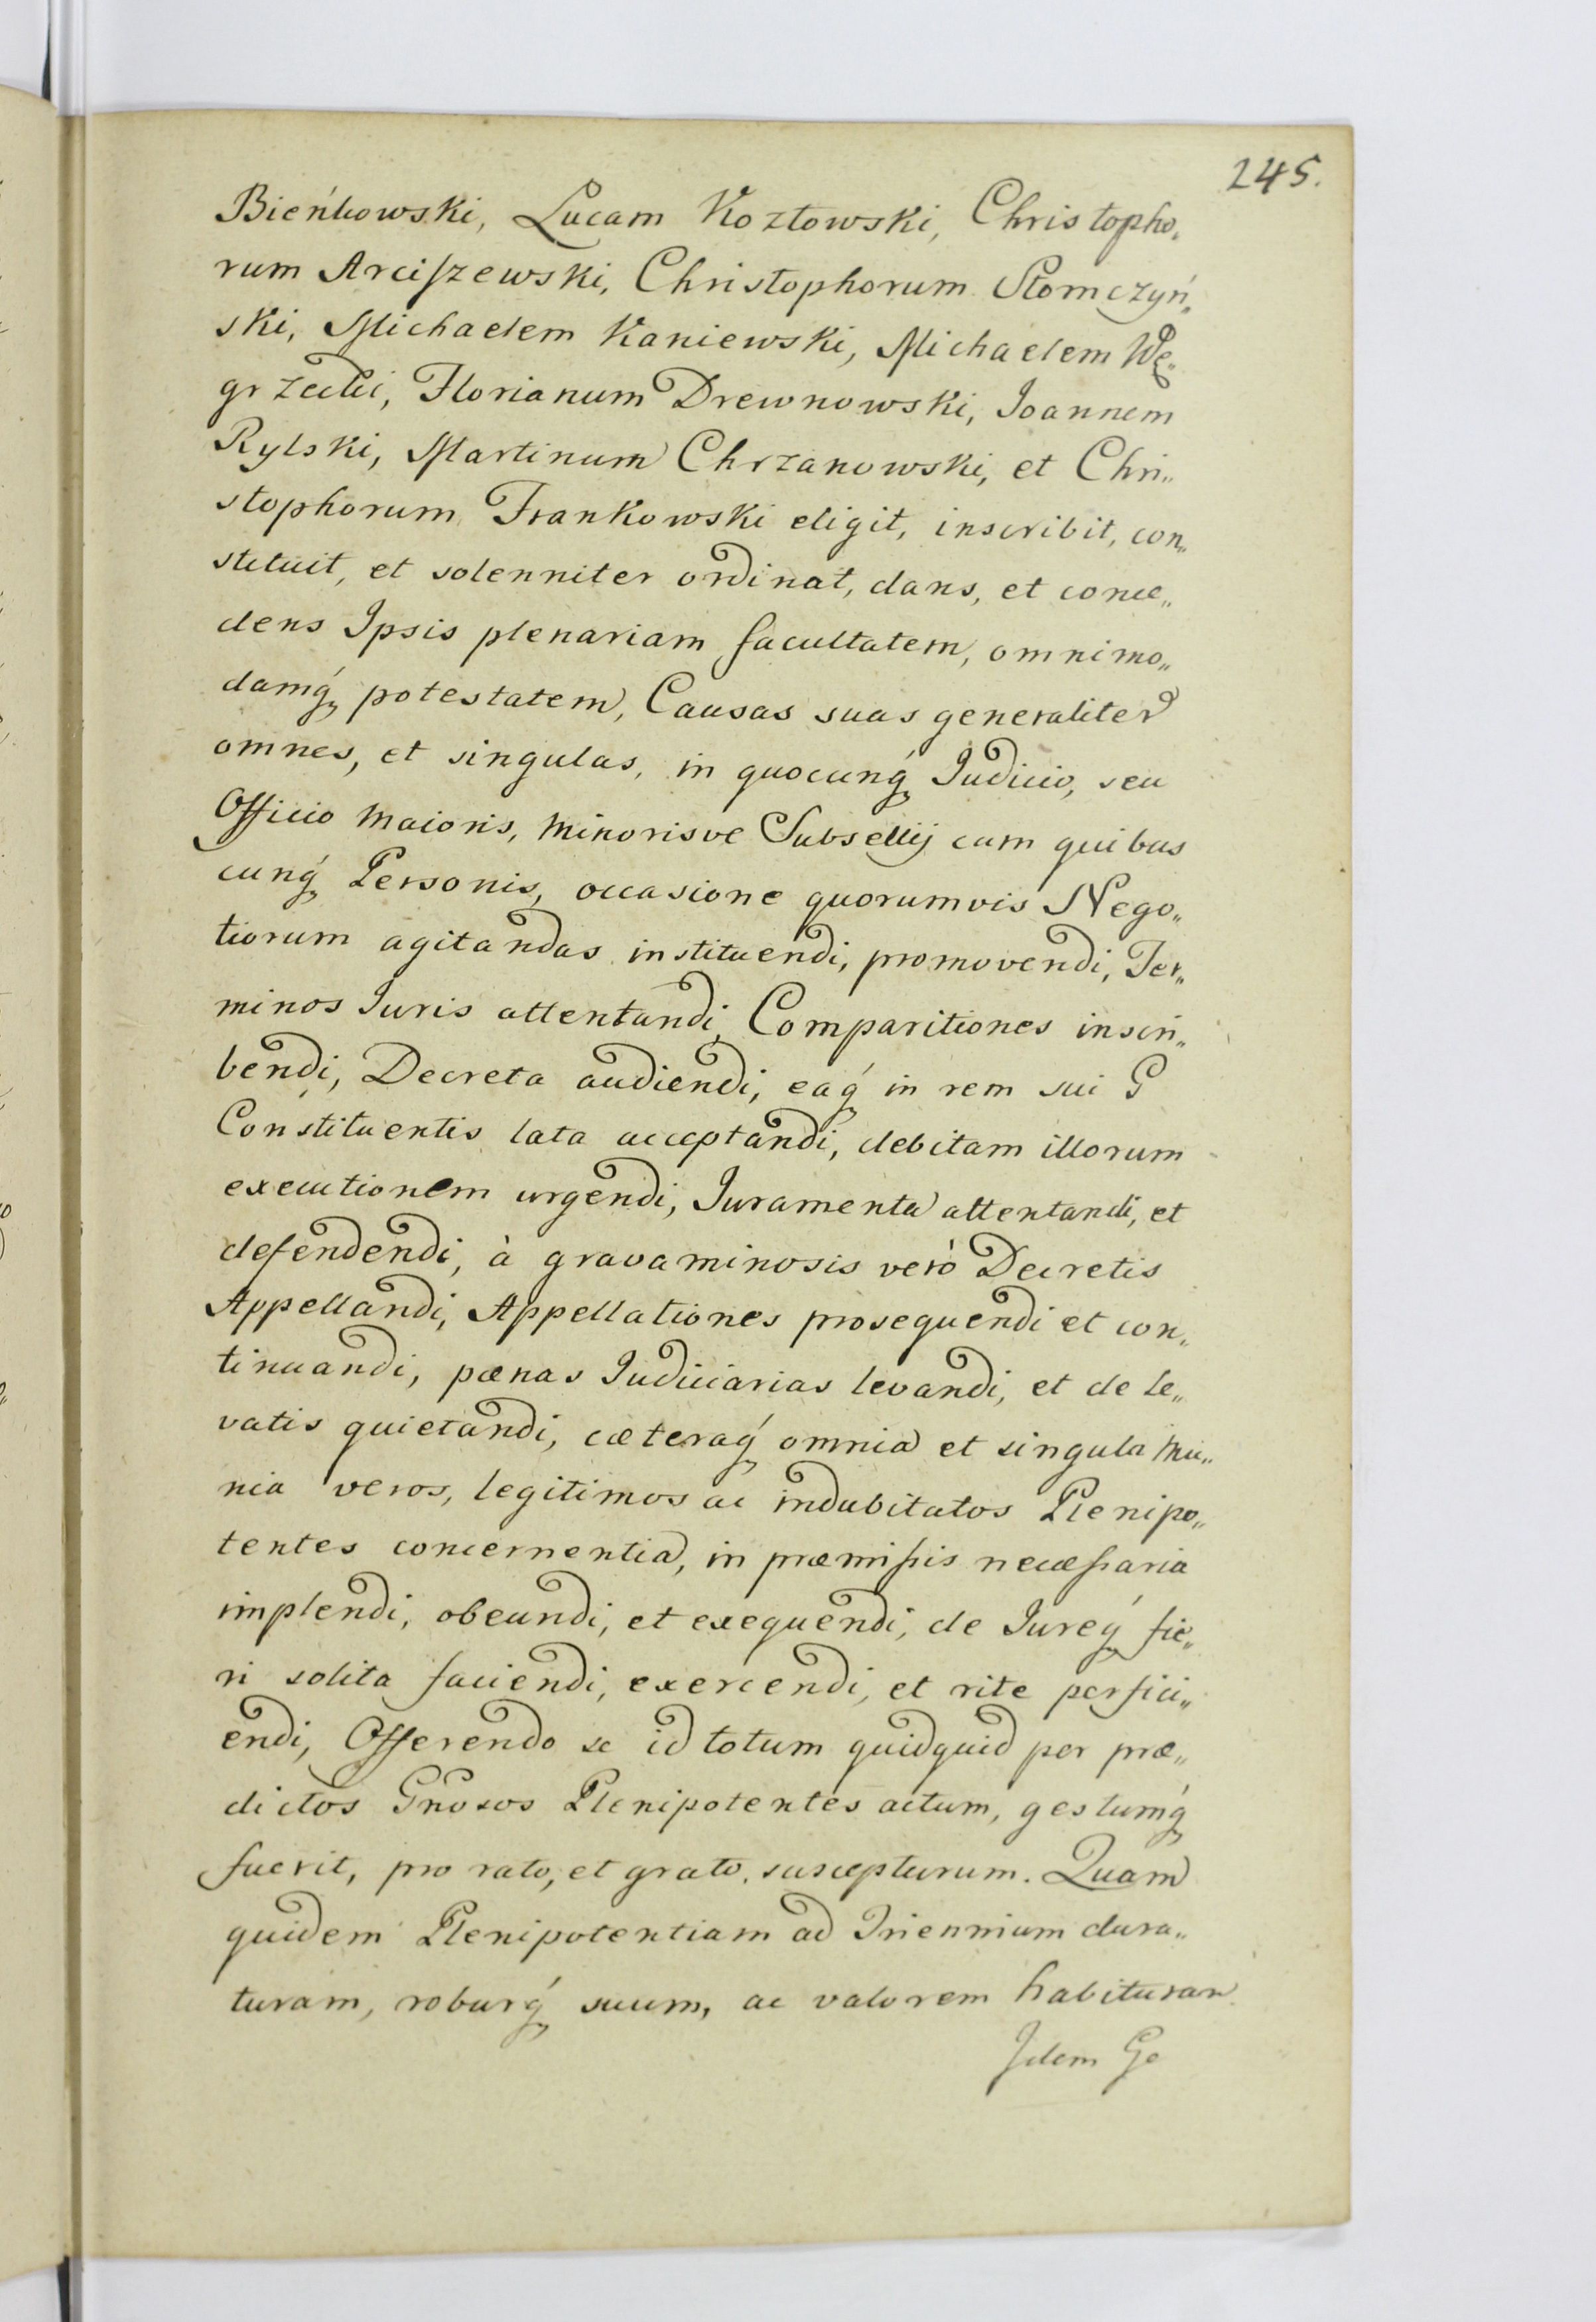 245.
Bieńkowski, Lucam Kozłowski, Christopho„
rum Arciszewski, Christophorum Słomczyń„
ski, Michaelem Kaniewski, Michaelem Wę„
grzecki, Florianum Drewnowski, Joannem
Rylski, Martinum Chrzanowski, et Chri„
stophorum Frankowski eligit, inscribit, con„
stituit, et solenniter ordinat, dans, et conce„
dens Ipsis plenariam facultatem, omnimo„
damq́ potestatem, Causas suas generaliter
omnes, et singulas, in quocunq́ Judicio, seu
Officio Maioris, Minorisve Subsellij cum quibus
cunq́ Personis, occasione quorumvis Nego„
tiorum agitandas instituendi, promovendi, Ter„
minos Juris attentandi, Comparitiones inscri„
bendi, Decreta audiendi, eaq́ in rem sui G
Constituentis lata acceptandi, debitam illorum
executionem urgendi, Juramenta attentandi, et
defendendi, à gravaminosis verò Decretis
Appellandi, Appellationes prosequendi et con„
tinuandi, pænas Judiciarias levandi, et de le„
vatis quietandi, cæteraq́ omnia et singula Mu„
nia veros, legitimos ac indubitatos Plenipo„
tentes concernentia, in præmissis necæssaria
implendi, obeundi, et exequendi, de Jureq́ fie„
ri solita faciendi, exercendi, et rite perfici„
endi, Offerendo se id totum quidquid per præ„
dictos Gnosos Plenipotentes actum, gestumq́
fuerit, pro rato, et grato, suscepturum. Quam
quidem Plenipotentiam ad Triennium dura„
turam, roburq́ suum, ac valorem habituram
Idem Ge